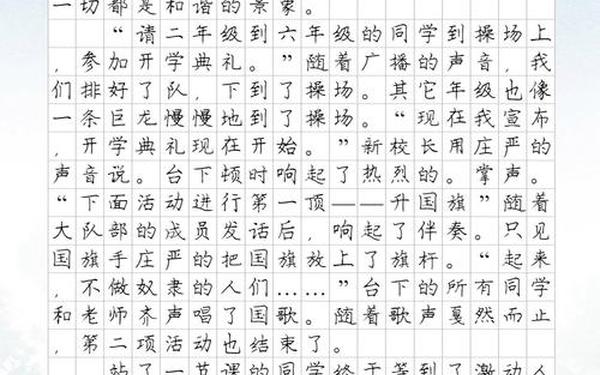 一切都是和谐的景象。
“请二年级到六年级的同学到操场上
，参加开学典礼。”随着广播的声音，我
们排好了队，下到了操场。其它年级也像
一条巨龙慢慢地到了操场。“现在我宣布
，开学典礼现在开始。”新校长用庄严的
声音说。台下顿时响起了热烈的。掌声。
“下面活动进行第一顶——升国旗”随着
大队部的成员发话后，响起了伴奏。只见
国旗手庄严的把国旗放上了旗杆。“起来
，不做奴隶的人们……”台下的所有同学
和老师齐声唱了国歌。随着歌声戛然而止
，第二项活动也结束了。
站了一节课的同学终于等到了激动人